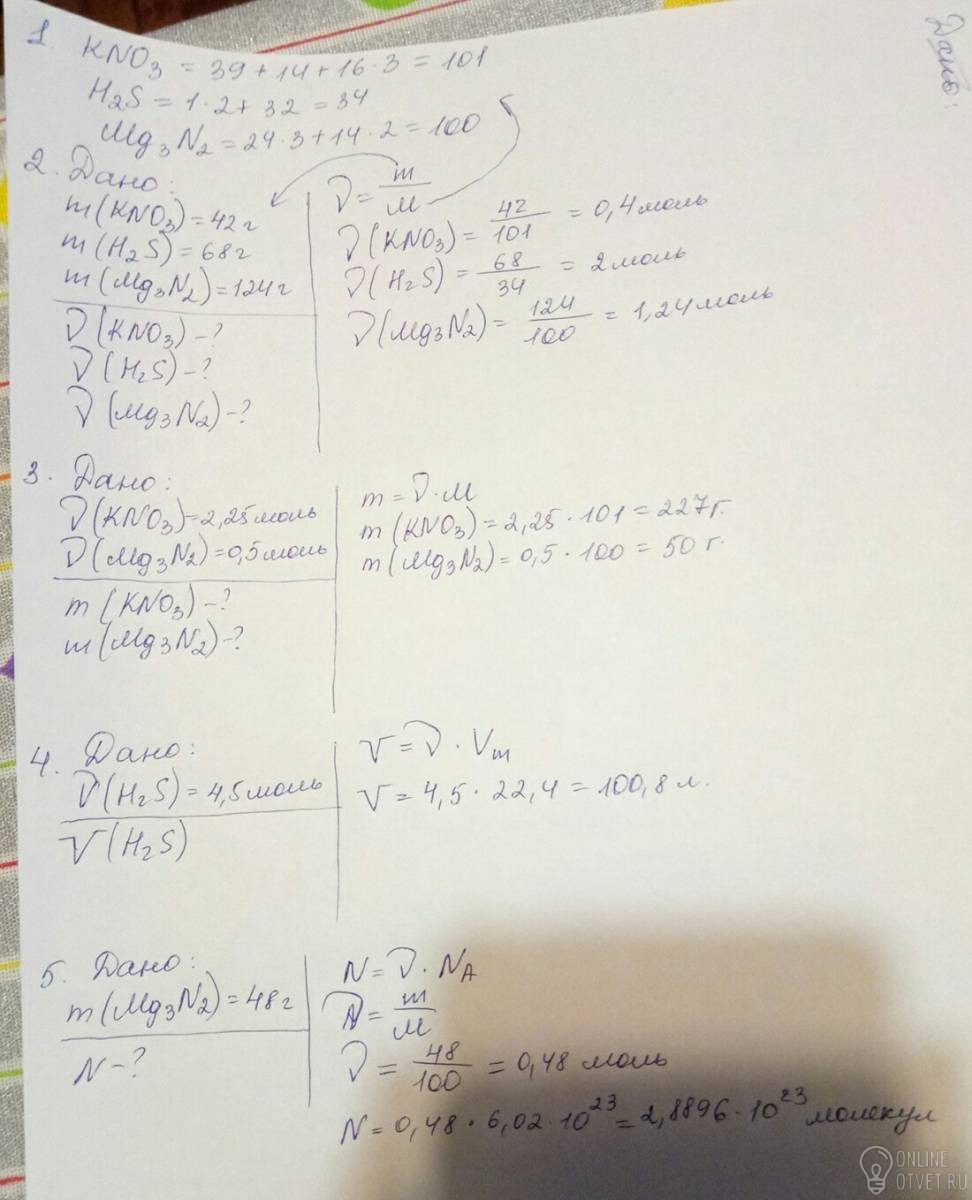 1 KNO₃ = 39 + 14 + 16 · 3 = 101
H₂S = 1 · 2 + 32 = 34
Mg₃N₂ = 24 · 3 + 14 · 2 = 100
2. Дано:
m (KNO₃) = 42 г
m (H₂S) = 68 г
m (Mg₃N₂) = 124 г
ν (KNO₃) - ?
ν (H₂S) - ?
ν (Mg₃N₂) - ?
ν = m/M
ν (KNO₃) = 42/101 = 0,4 моль
ν (H₂S) = 68/34 = 2 моль
ν (Mg₃N₂) = 124/100 = 1,24 моль
3. Дано:
ν (KNO₃) = 2,25 моль
ν (Mg₃N₂) = 0,5 моль
m (KNO₃) - ?
m (Mg₃N₂) - ?
m = ν · M
m (KNO₃) = 2,25 · 101 = 227 г.
m (Mg₃N₂) = 0,5 · 100 = 50 г.
4. Дано:
ν (H₂S) = 4,5 моль
V (H₂S)
V = ν · Vm
V = 4,5 · 22,4 = 100,8 л.
5. Дано:
m (Mg₃N₂) = 48 г
N - ?
N = ν · NA
ν = m/M
ν = 48/100 = 0,48 моль
N = 0,48 · 6,02 · 10²³ = 2,8896 · 10²³ молекул
Дано:
ONLINE
OTVET.RU